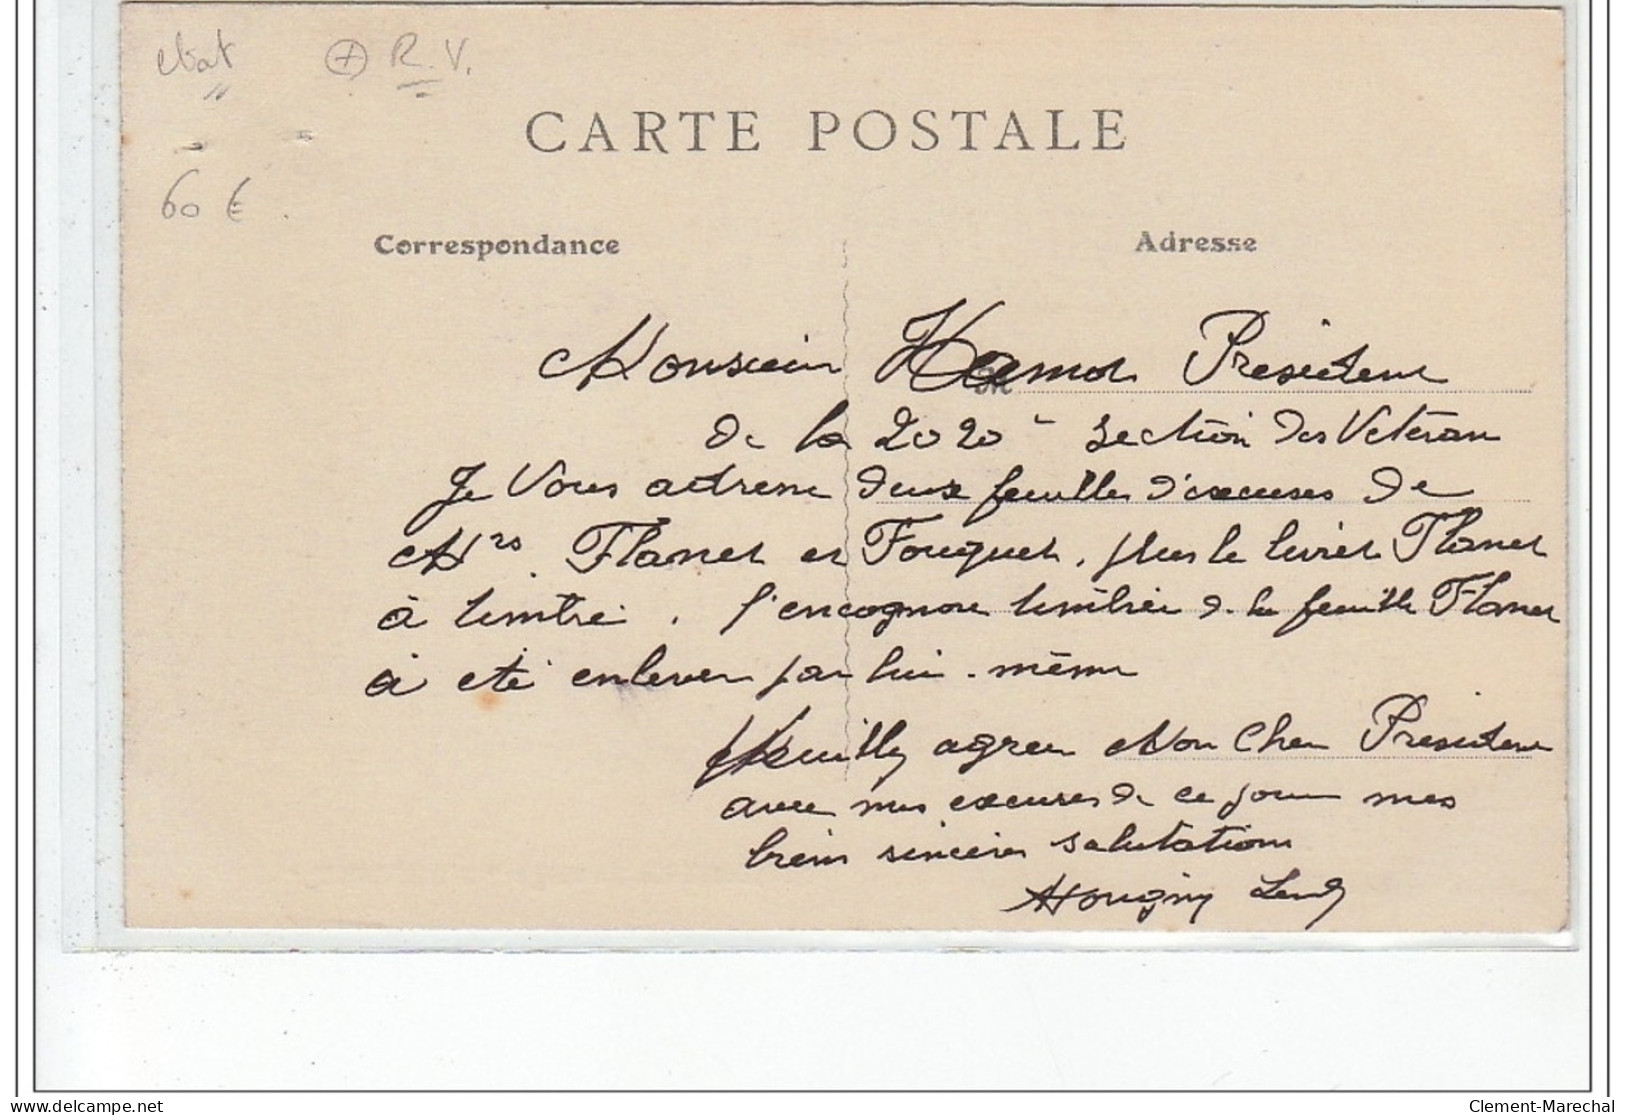 état R.V.
60 €
CARTE POSTALE
Correspondance Adresse
Monsieur Hamon Président
de la 2020è Section des Vétéran
Je vous adresse deux feuilles d'excuses de
Mrs Flanet et Fouquet, plus le livret Flanet
à timbré. l'encognure timbrée de la feuille Flanet
à été enlever par lui-même
Veuillez agréer Mon Cher Président
avec mes excuses de ce jour mes
bien sincères salutations
delcampe.net
Clement-Marechal